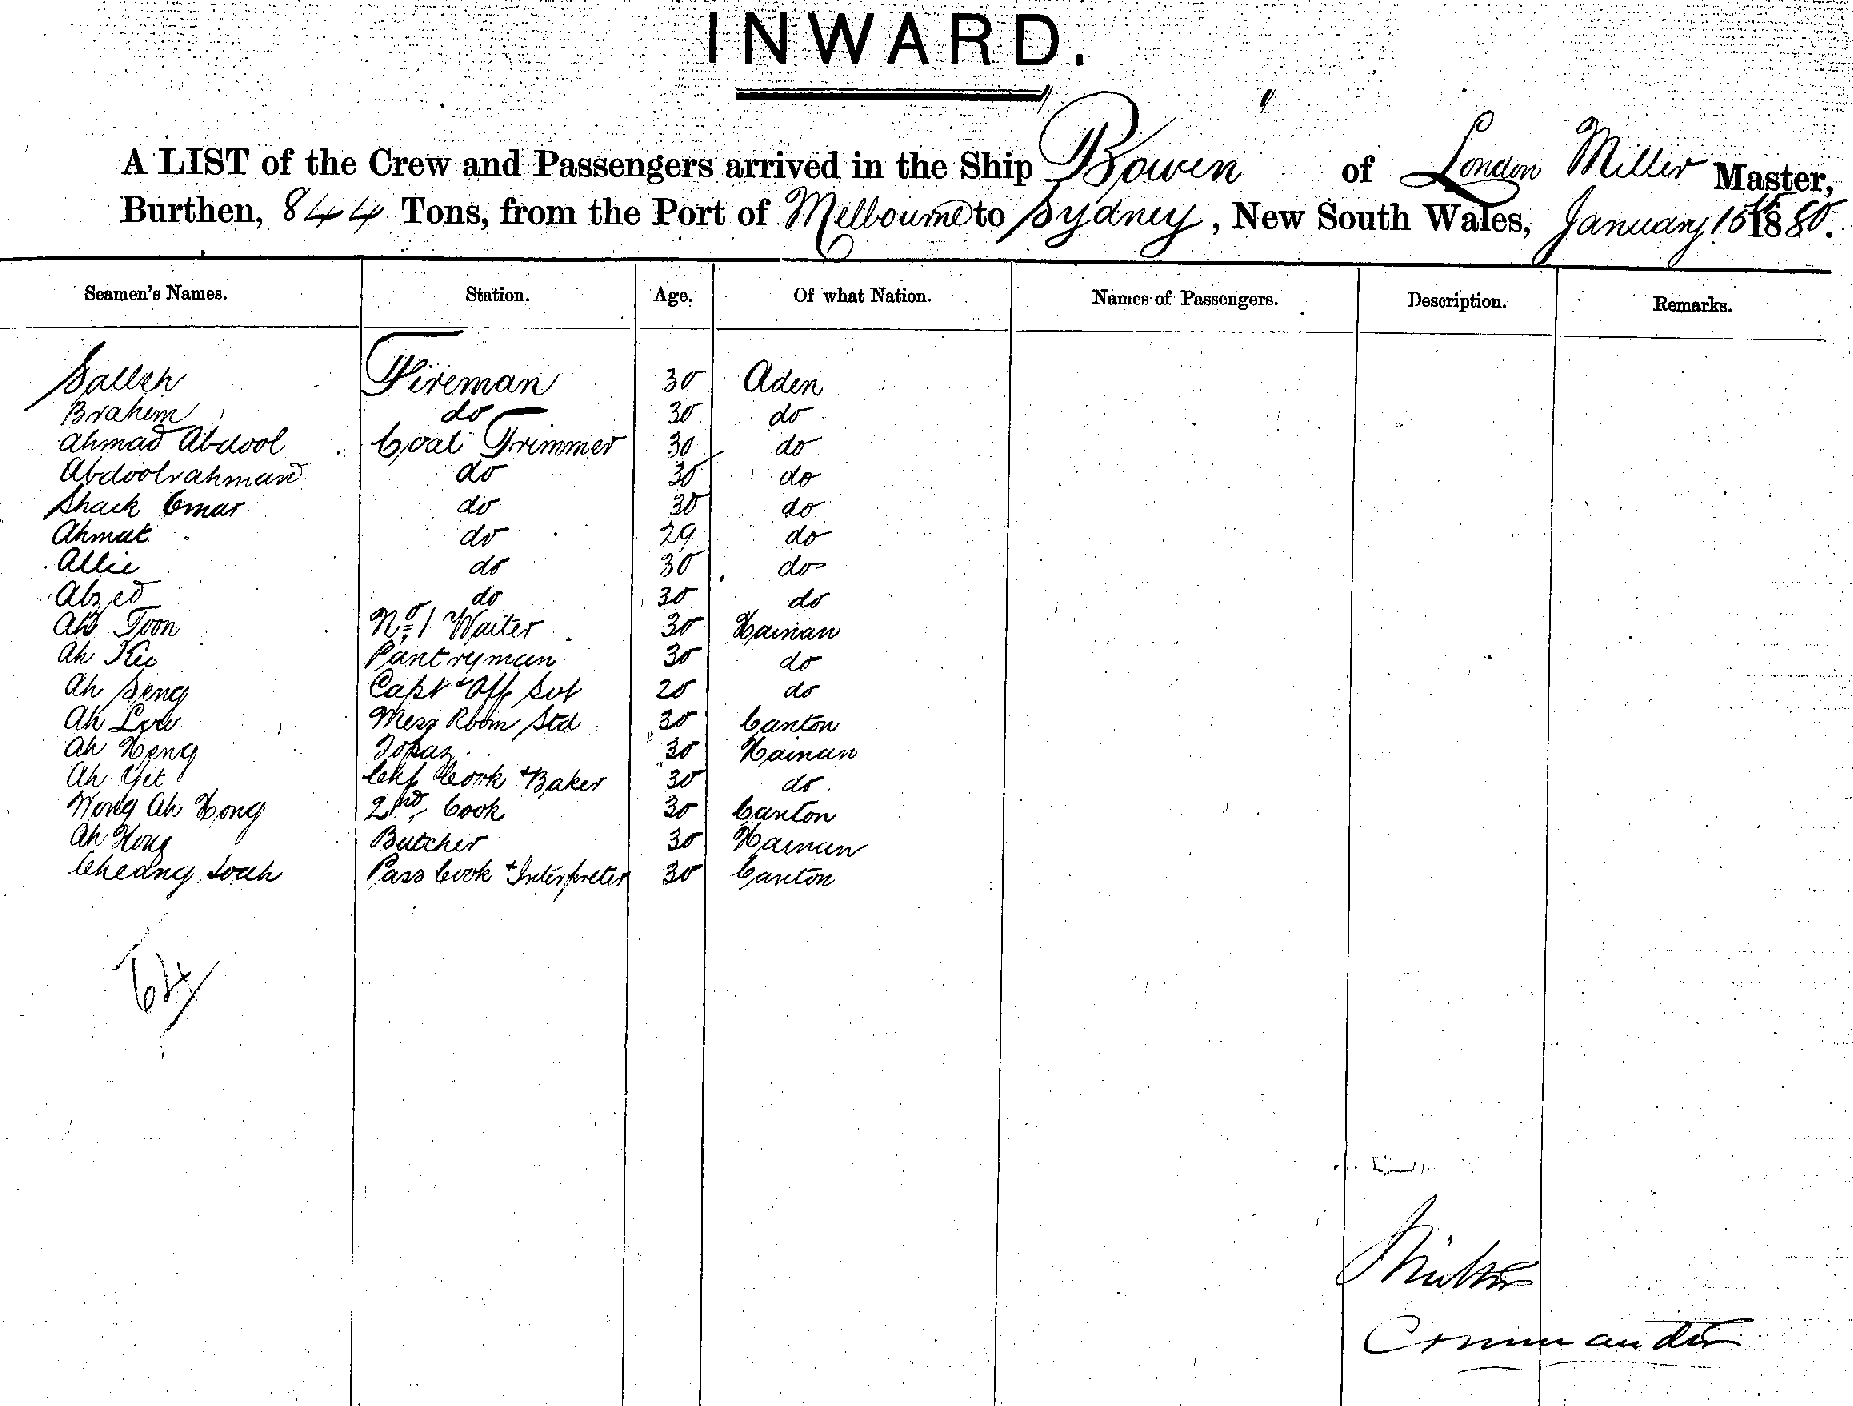 INWARD.
A LIST of the Crew and Passengers arrived in the Ship Bowen of London Miller Master,
Burthen, 844 Tons, from the Port of Melbourne to Sydney, New South Wales, January 15th 1880.
Seamen's Names. Station. Age. Of what Nation. Names of Passengers. Description. Remarks.
Salleh Fireman 30 Aden
Brahem do 30 do
Ahmad Abdool Coal Trimmer 30 do
Abdoolrahman do 30 do
Shaik Omar do 30 do
Ahmat do 29 do
Allie do 30 do
do 30 do
Ah Toon No 1 Waiter 30 Hainan
Ah Kee Pantryman 30 do
Ah Seng Capt & Off Svt 20 do
Ah Mess Room Std 30 Canton
Ah Heng Topaz 30 Hainan
Ah Yet Chf Cook & Baker 30 do
Wong Ah Hong 2nd Cook 30 Canton
Ah Hong Butcher 30 Hainan
Cheang Pass Cook & Interpreter 30 Canton
64
Miller
Commander